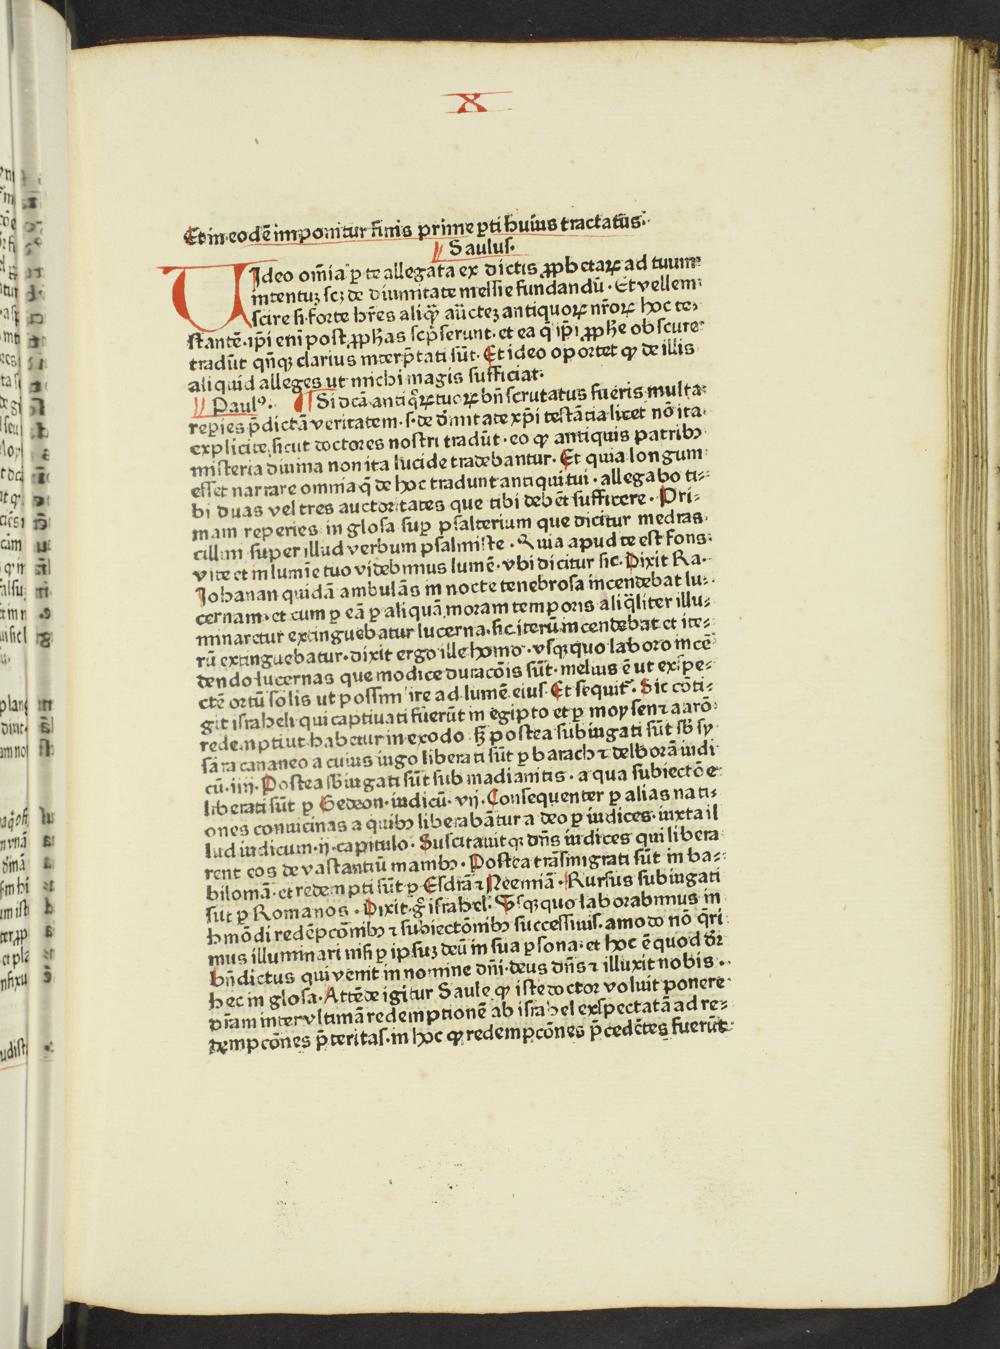 X
Et in eodē imponitur finis prime ꝑti huius tractatus.
Saulus.
UIdeo om̄ia ꝑ te allegata ex dictis ꝓphetaꝝ ad tuum
intentuꝫ scꝫ de diuinitate messie fundandū. Et vellem
scire si forte hr̄es aliqͣꝫ aucteꝫ antiquoꝝ nr̄oꝝ hoc te⸗
stantē. ip̄i eni post ꝓphas scp̄serunt. et ea q̄ ip̄i ꝓphe obscure
tradūt qn̄qꝫ clarius interp̄tati sūt. Et ideo oportet ꝙ de illis
aliquid alleges ut michi magis sufficiat.
Paulꝰ. Si dc̄a antiqͦꝝ tuoꝝ bn̄ scrutatus fueris multa
repies p̄dictā veritatem. s. de diuītate xp̄i testātia licet nō ita
explicite, sicut doctores nostri tradūt. eo ꝙ antiquis patribꝫ
misteria diuina non ita lucide tradebantur. Et quia longum
esset narrare omnia q̄ de hoc tradunt antiqui tui. allegabo ti⸗
bi duas vel tres auctoritates que tibi debēt sufficere. Pri⸗
mam reperies in glosa suꝑ psalterium que dicitur medras
cillim super illud verbum psalmiste. Quia apud te est fons
vite et in lumīe tuo videbimus lumē. vbi dicitur sic. Dixit Ra.
Johanan quidā ambulās in nocte tenebrosa incendebat lu⸗
cernam. et cum ꝑ eā ꝑ aliquā moram temporis aliq̄liter illu⸗
minaretur extinguebatur lucerna. sic iterū incendebat et ite⸗
rū extinguebatur. dixit ergo ille homo. vsqꝫquo laboro incē
dendo lucernas que modice duracōis sūt. melius ē ut exspe⸗
ctē ortū solis ut possim ire ad lumē eius. Et sequit̄. Sic cōti⸗
git israheli qui captiuati fuerūt in egipto et ꝑ moysen ⁊ aarō
redempti ut habetur in exodo. sꝫ postea subiugati sūt sb̄ sy
sara cananeo a cuius iugo liberati sūt ꝑ barach ⁊ delborā iudi
cū. iiij. Postea sb̄iugati sūt sub madianitis. a qua subiectōe
liberati sūt ꝑ Gedeon. iudicū. vij. Consequenter ꝑ alias nati⸗
ones conuicinas a quibꝫ liberabātur a deo ꝑ iudices. iuxta il
lud iudicum. ij. capitulo. Suscitauitqꝫ dn̄s iudices qui libera
rent eos de vastantiū manibꝫ. Postea trāsmigrati sūt in ba⸗
bilomā. et redempti sūt ꝑ Esdrā ⁊ Neemiā. Rursus subiugati
sūt ꝑ Romanos. Dixit gͦ israhel. Vsqꝫquo laborabimus in
hmōdi redēpcōnibꝫ ⁊ subiectōnibꝫ successiuis. amodo nō q̄ri
mus illuminari nisi ꝑ ipsuꝫ deū in sua ꝑsona. et hoc ē quod dr̄
bn̄dictus qui venit in nomine dn̄i. deus dn̄s ⁊ illuxit nobis.
hec in glosa. Attēde igitur Saule ꝙ iste doctor voluit ponere
dr̄am inter vltimā redemptionē ab israhel exspectatā ad re⸗
dempcōnes p̄teritas. in hoc ꝙ redempcōnes p̄cedētes fuerūt